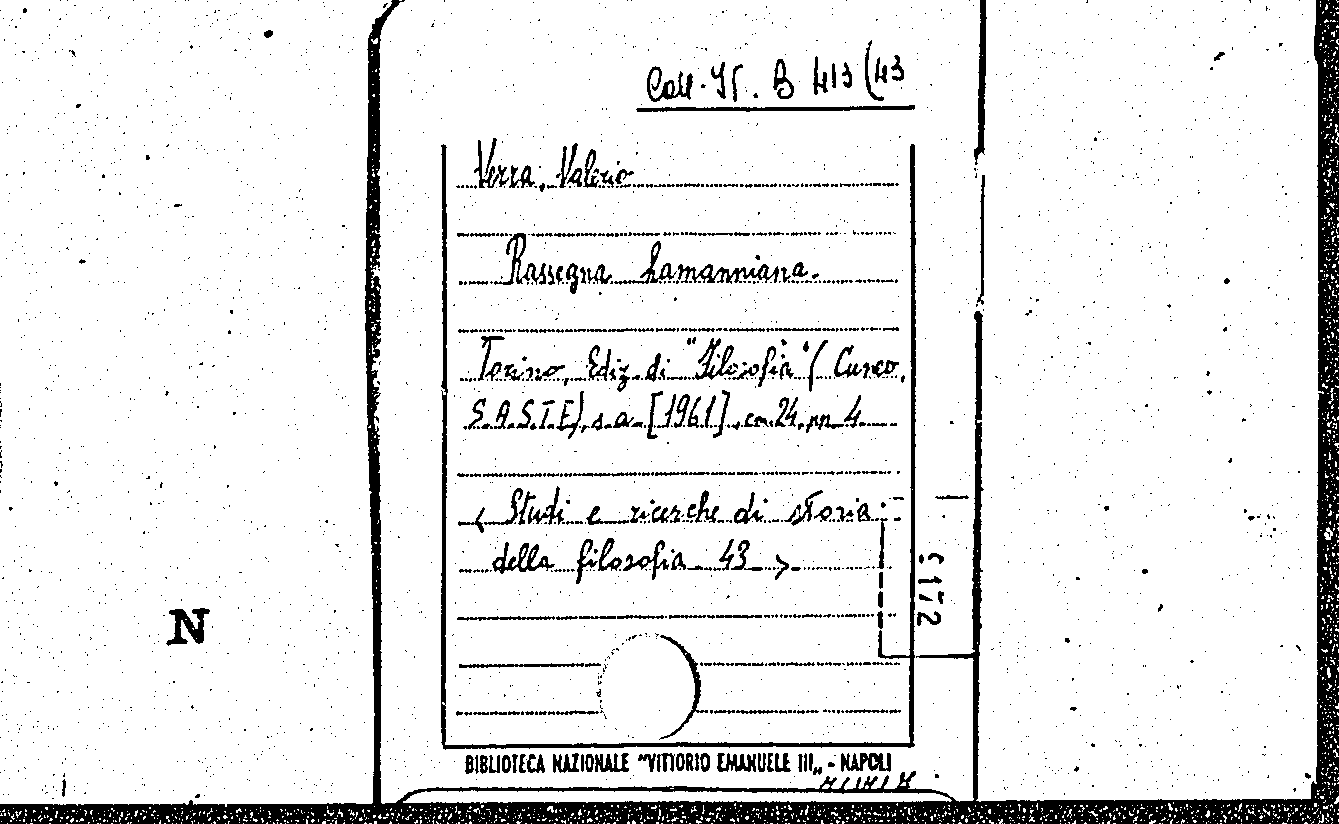 Coll. It. B 413 (43
Verra, Valerio
Rassegna Lamanniana.
Torino, Ediz. di "Filosofia" (Cuneo,
S.A.S.T.E), s.a. [1961], cm. 24, pp. 4
< Studi e ricerche di storia
della filosofia - 43 >.
N
BIBLIOTECA NAZIONALE "VITTORIO EMANUELE III„ - NAPOLI